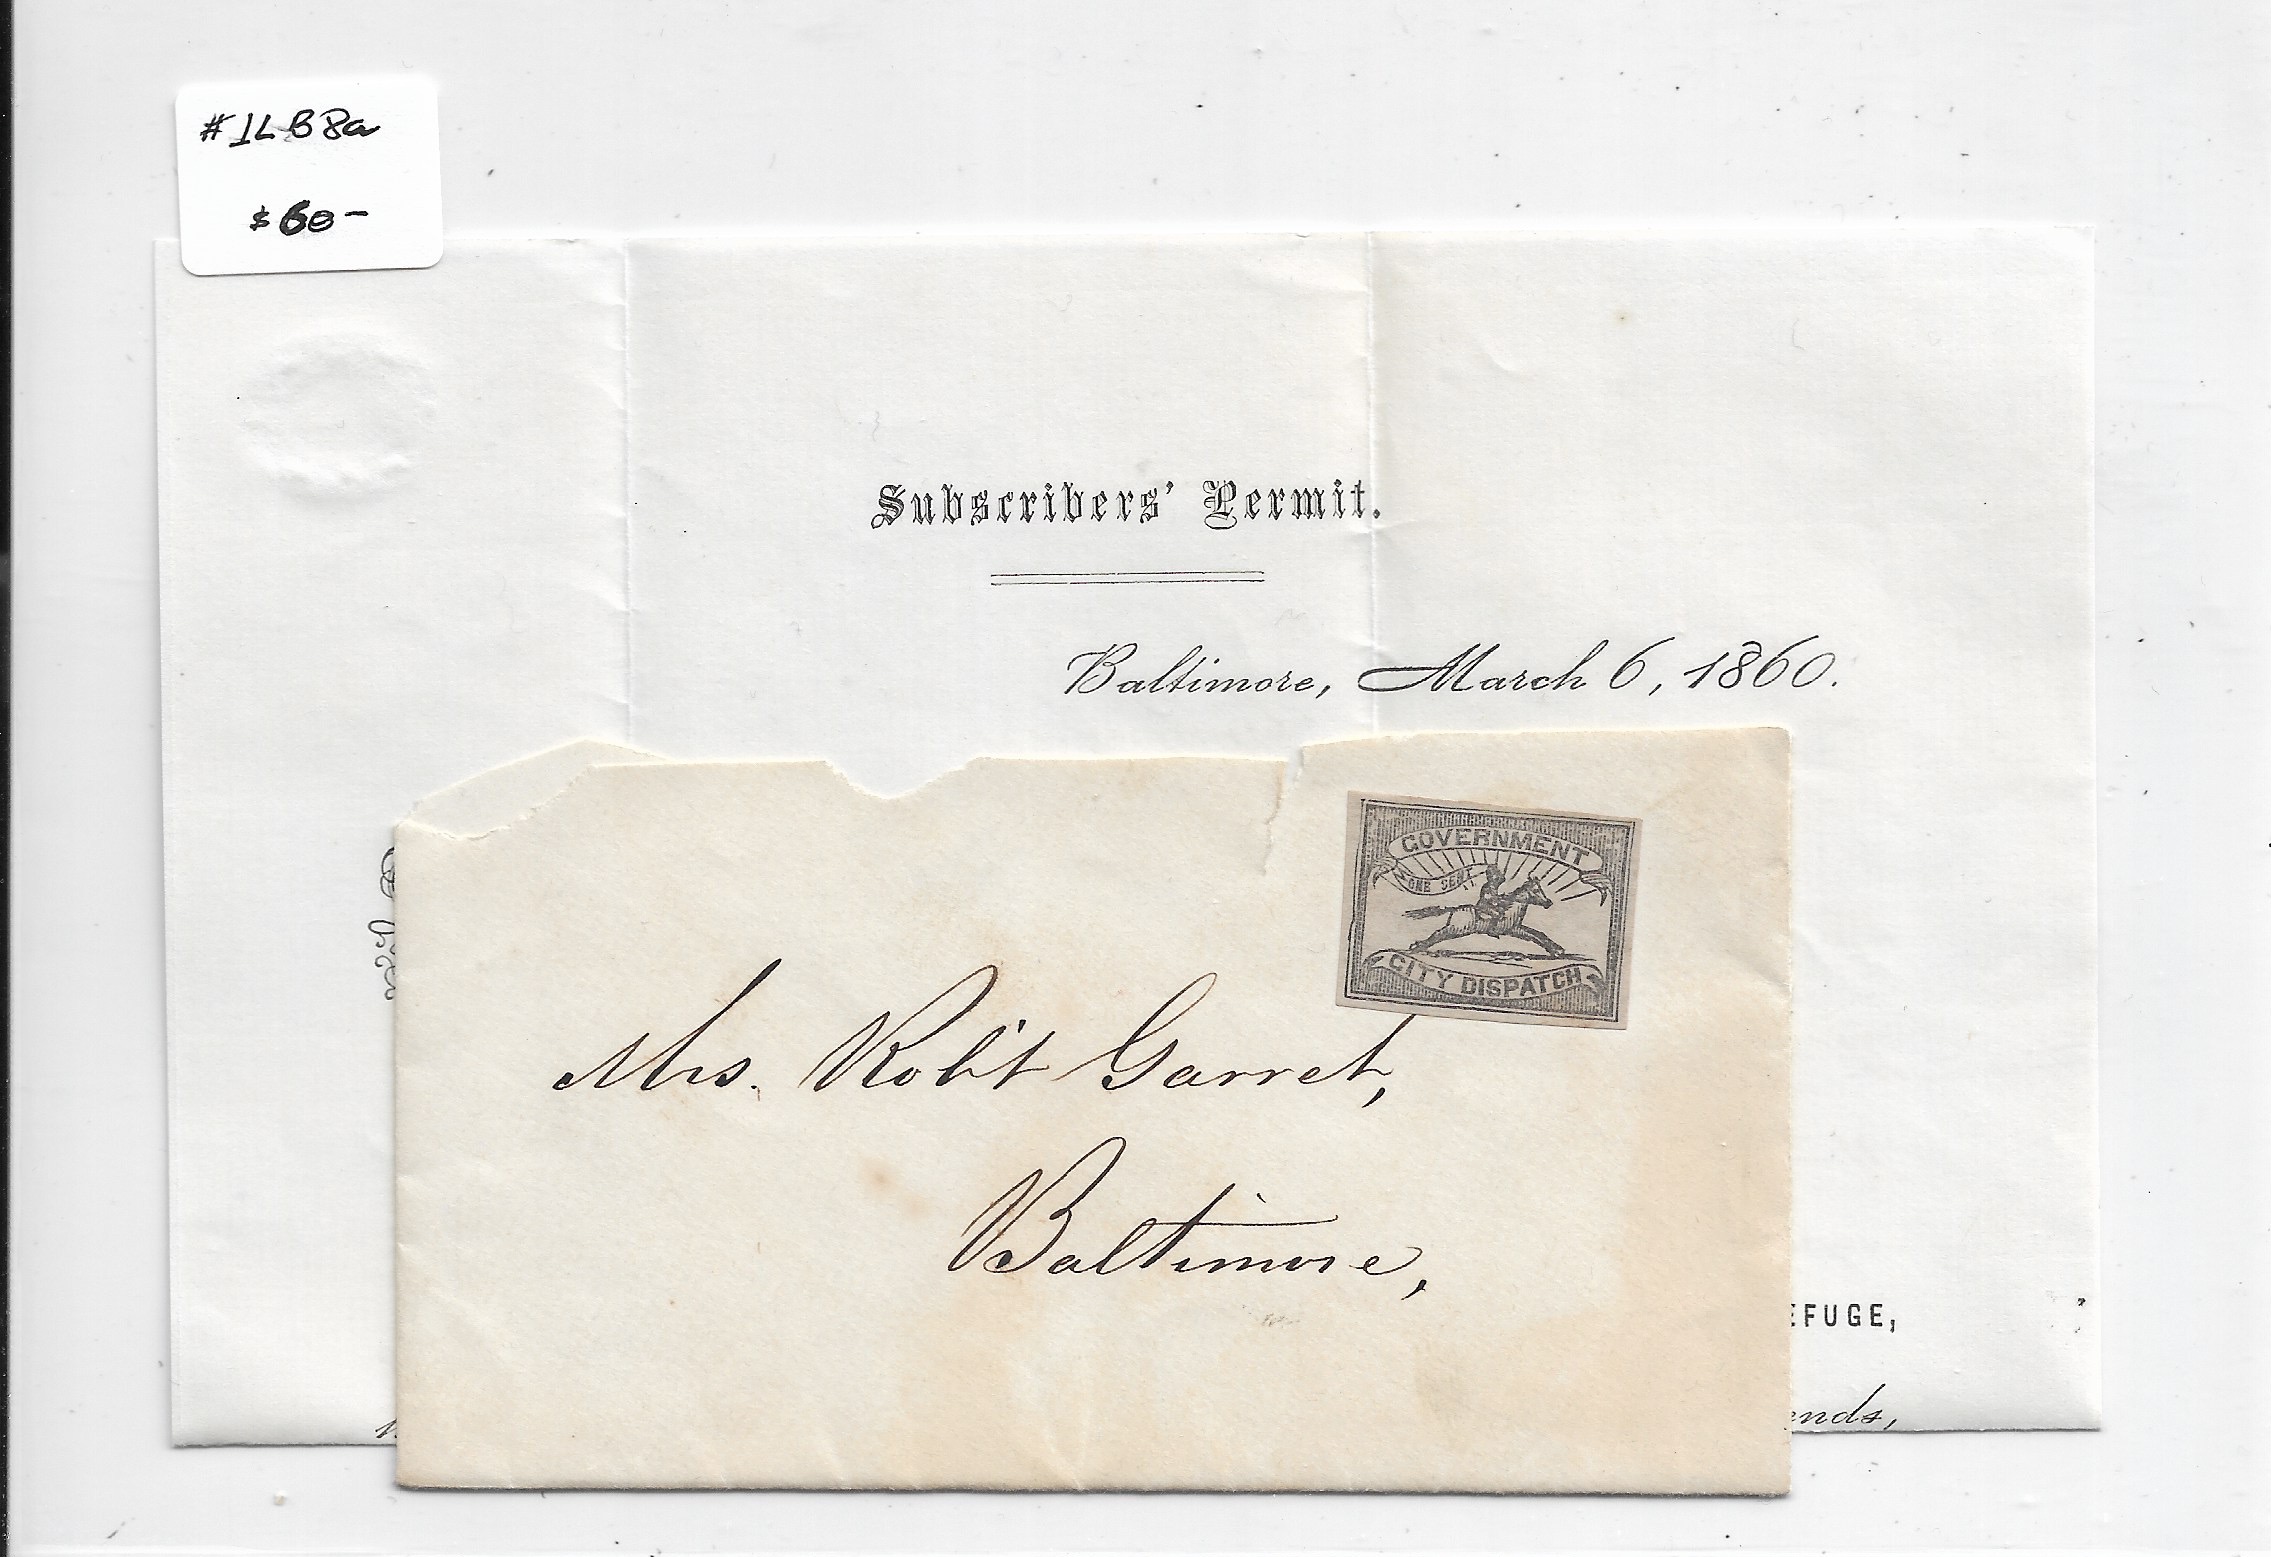 #1LB8a
$60-
Subscribers' Permit.
Baltimore, March 6, 1860.
GOVERNMENT
ONE CENT
CITY DISPATCH
Mrs. Rob't Garret,
Baltimore,
EFUGE,
ends,